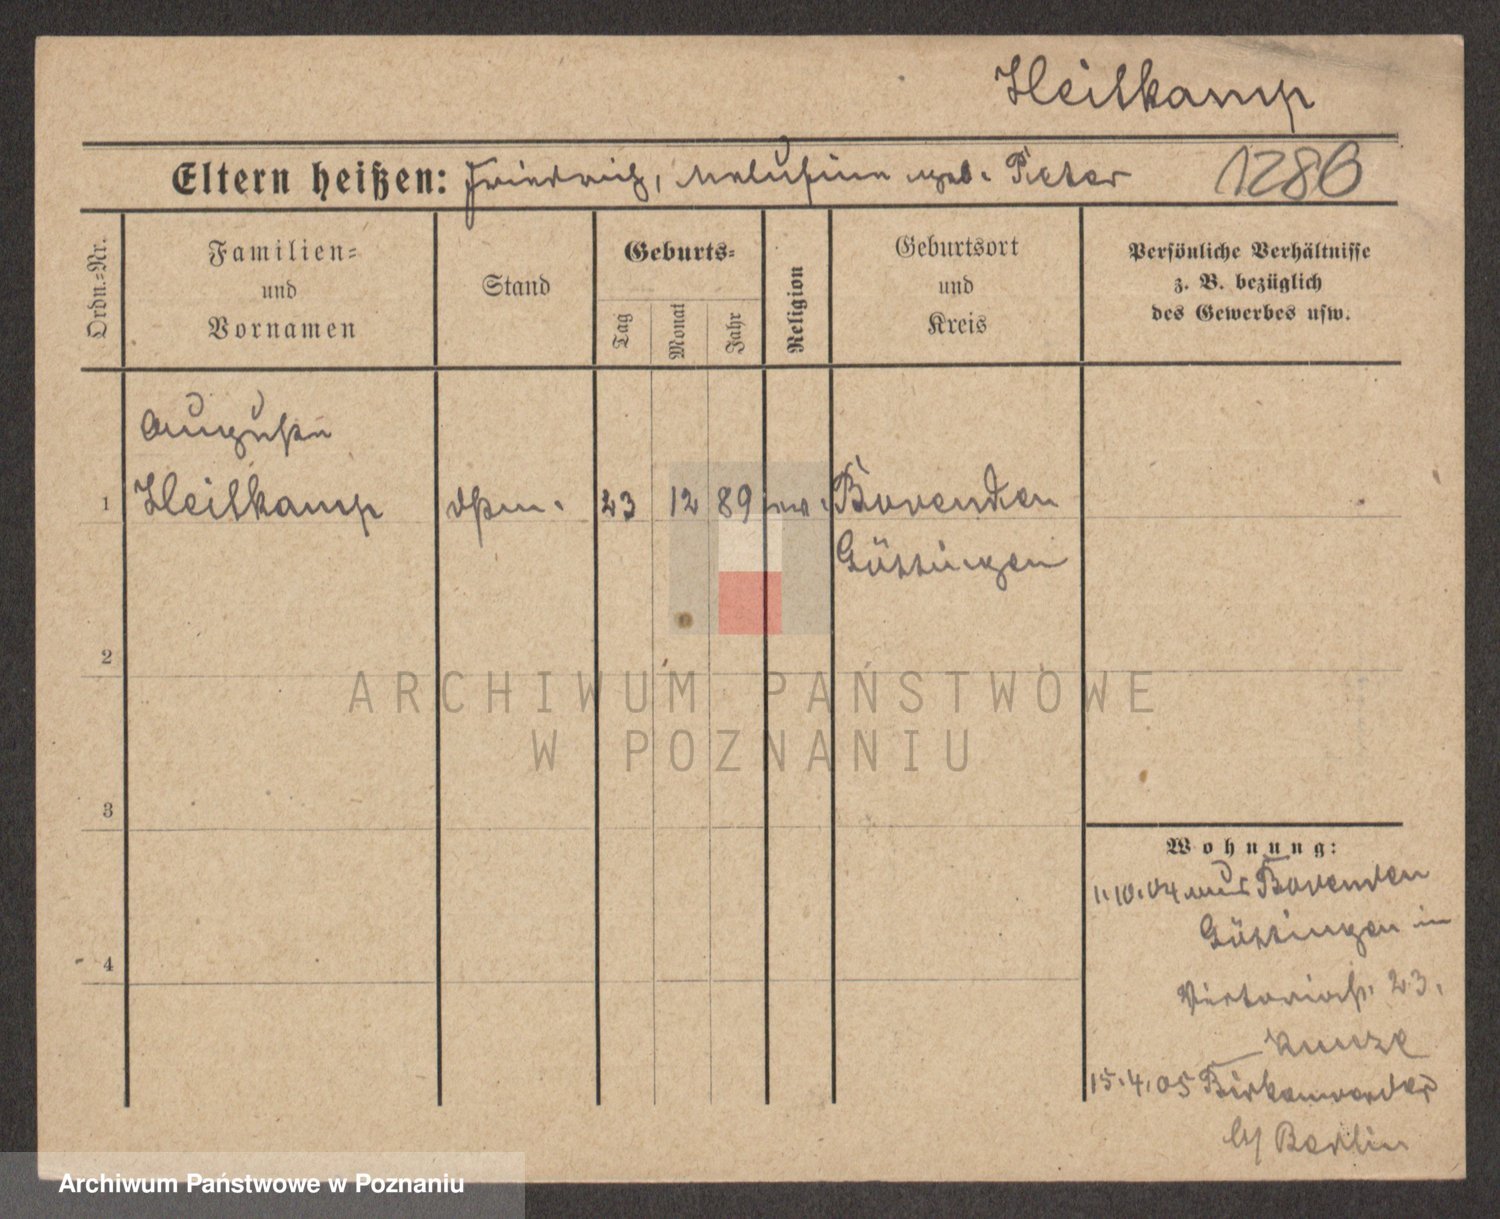 Heitkamp
Eltern heißen: Friedrich, Melusine geb. Peter 1286
Ordn.-Nr.
Familien-
und
Vornamen
Stand
Geburts-
Tag
Monat
Jahr
Religion
Geburtsort
und
Kreis
Persönliche Verhältnisse
z. B. bezüglich
des Gewerbes usw.
Auguste
1 Heitkamp 23 12 89 ev. Bovenden
Göttingen
2
ARCHIWUM PAŃSTWOWE
W POZNANIU
3
Wohnung:
1.10.04 aus Bovenden
Göttingen in
Viktoriastr. 23.
Kunze
4
15.4.05 Birkenwerder
b/ Berlin
Archiwum Państwowe w Poznaniu